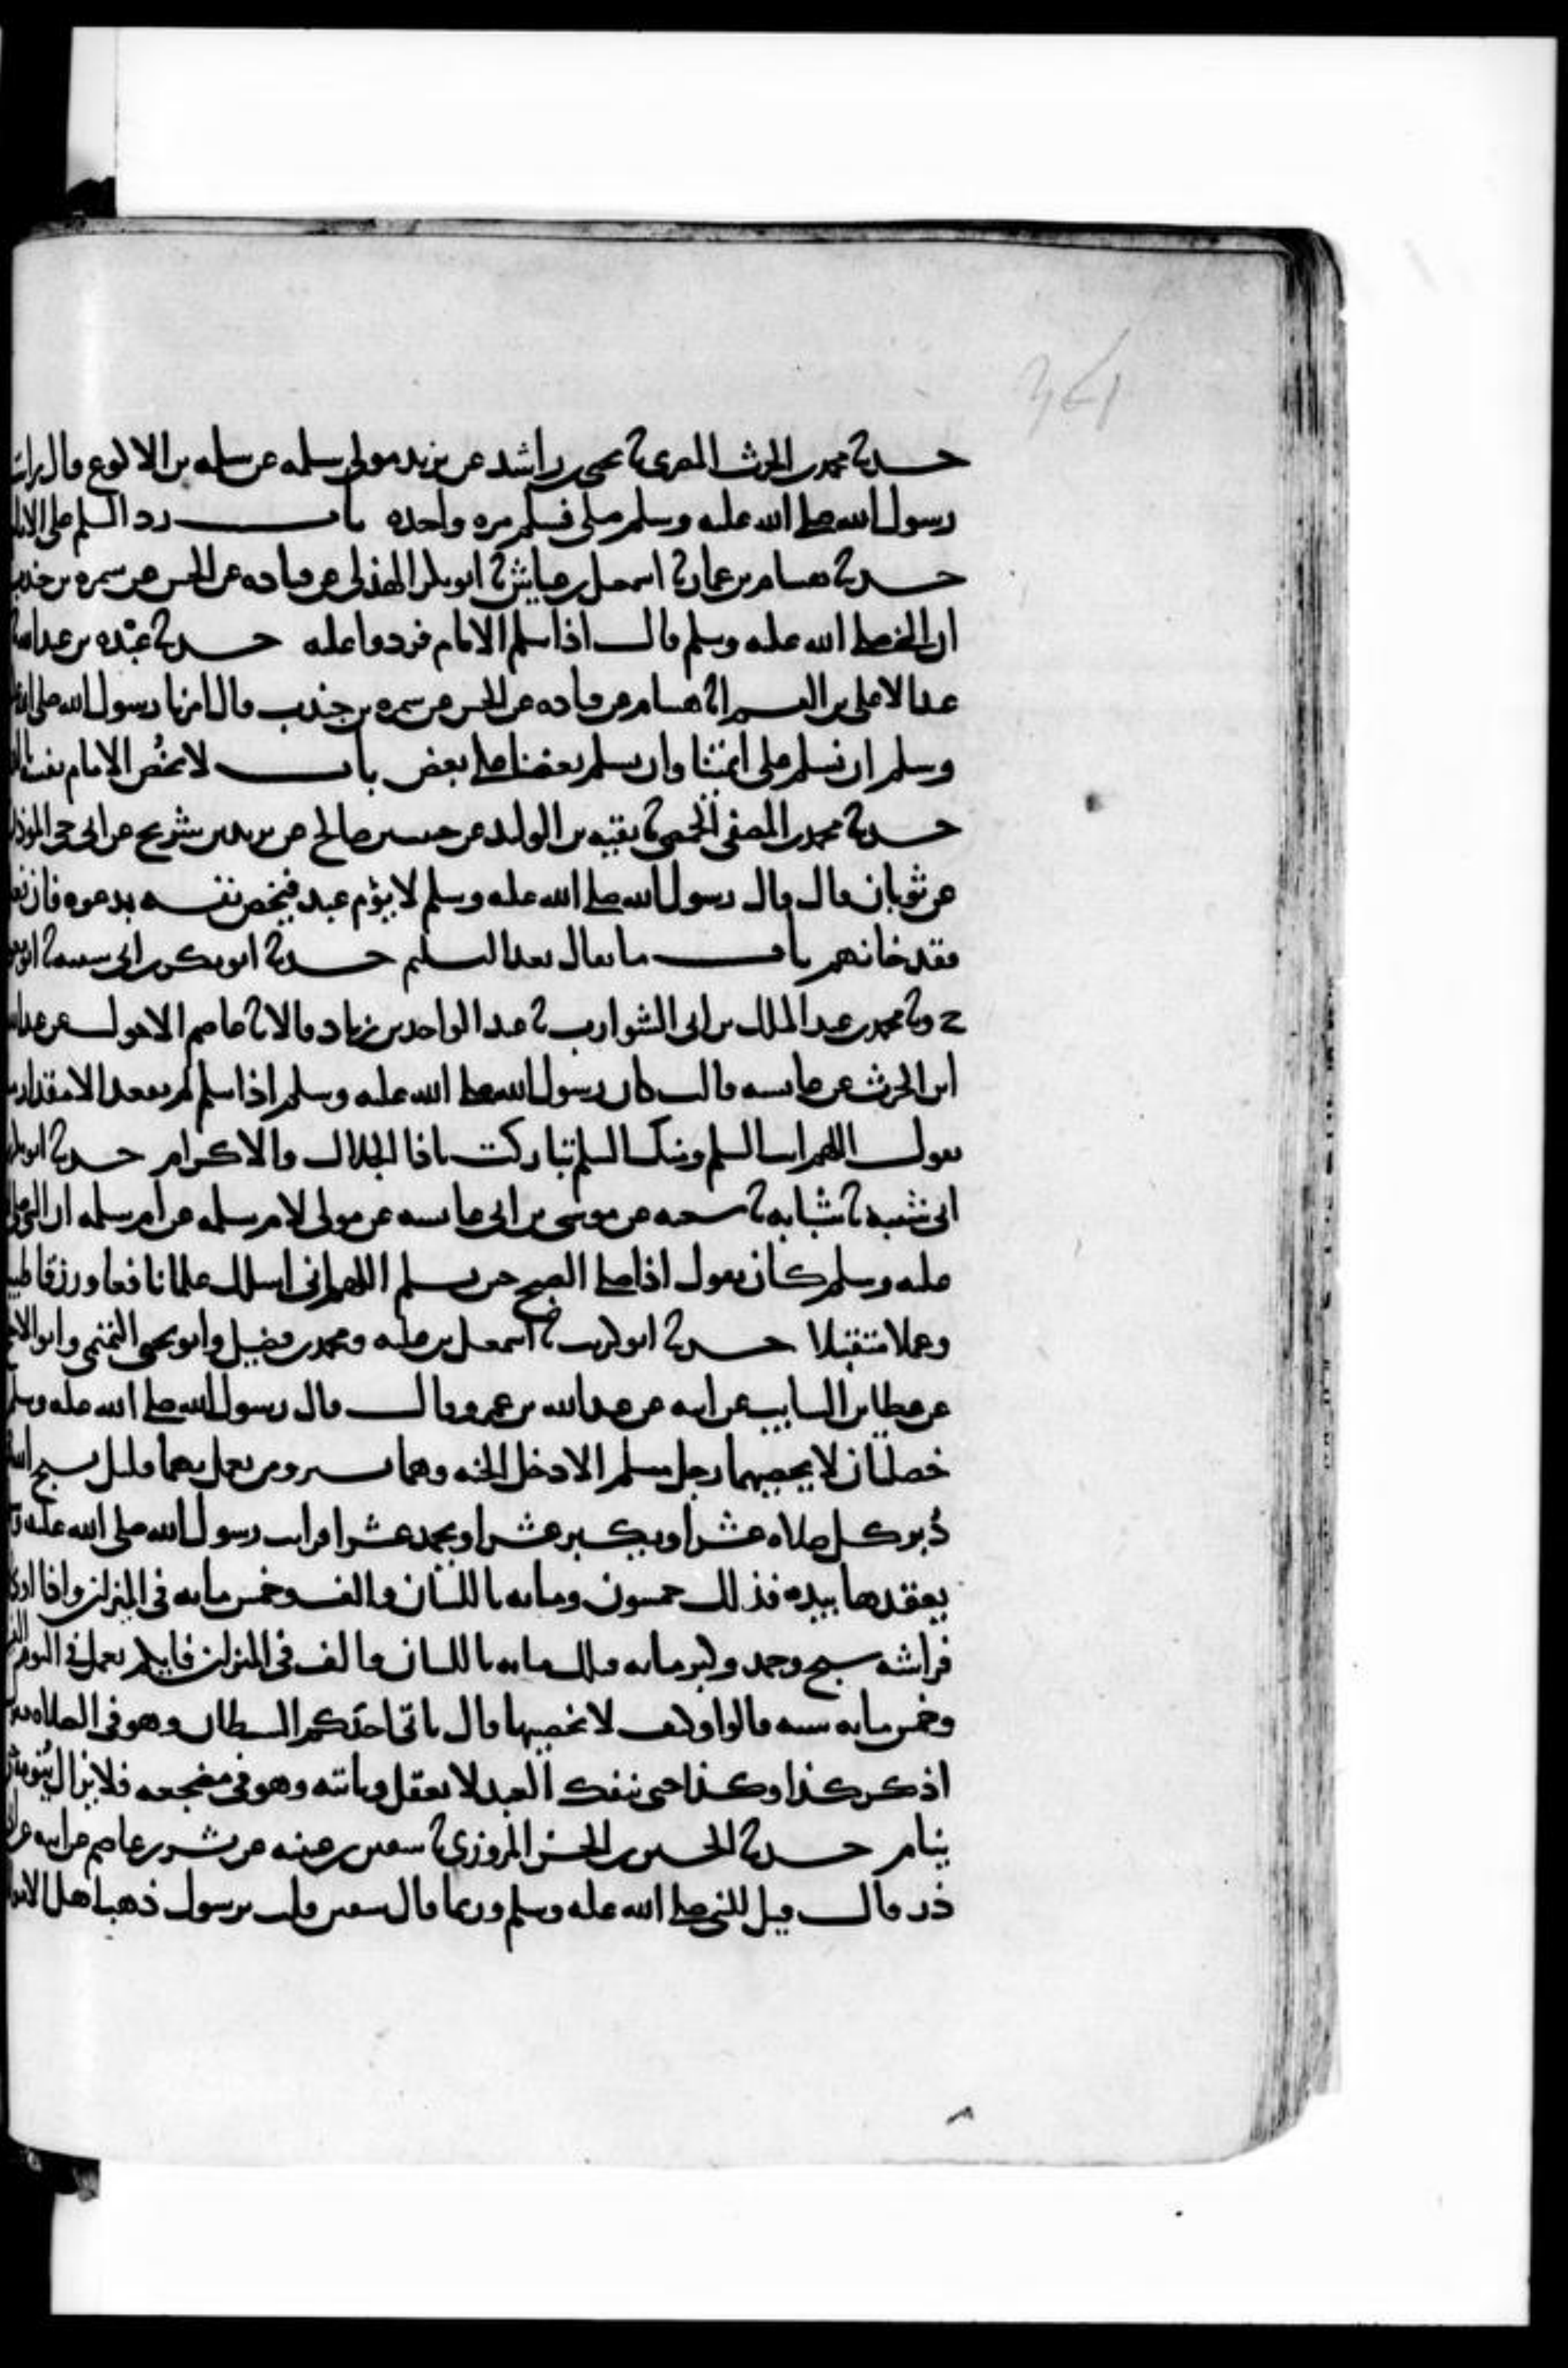 حدثنا محمد بن الحرث المصري ثنا يحيى بن راشد عن يزيد مولى سلمه عن سلمه بن الاكوع قال رايت
رسول الله صلى الله عليه وسلم صلى فسلم مره واحده باب رد السلم على الامام
حدثنا هشام بن عمار ثنا اسمعيل بن عياش ثنا ابو بكر الهذلي عن قتاده عن الحسن عن سمره بن جندب
ان النبي صلى الله عليه وسلم قال اذا سلم الامام فردوا عليه حدثنا عبده بن عبد الله ثنا
عبد الاعلى بن القسم انا همام عن قتاده عن الحسن عن سمره بن جندب قال امرنا رسول الله صلى الله عليه
وسلم ان نسلم على ائمتنا وان يسلم بعضنا على بعض باب لا يخص الامام نفسه
حدثنا محمد بن المصفى الحمصي ثنا بقيه بن الوليد عن حبيب بن صالح عن يزيد بن شريح عن ابي حي الموذن
عن ثوبان قال قال رسول الله صلى الله عليه وسلم لا يؤم عبد فيخص نفسه بدعوه فان فعل
فقد خانهم باب ما يقال بعد التسليم حدثنا ابو بكر بن ابي شيبه ثنا ابو معويه
ح وثنا محمد بن عبد الملك بن ابي الشوارب ثنا عبد الواحد بن زياد قالا ثنا عاصم الاحول عن عبد الله
ابن الحرث عن عايشه قالت كان رسول الله صلى الله عليه وسلم اذا سلم لم يقعد الا مقدار ما
يقول اللهم انت السلم ومنك السلم تباركت يا ذا الجلال والاكرام حدثنا ابو بكر بن
ابي شيبه ثنا شبابه ثنا شعبه عن موسى بن ابي عايشه عن مولى لام سلمه عن ام سلمه ان النبي صلى
عليه وسلم كان يقول اذا صلى الصبح حين يسلم اللهم اني اسلك علما نافعا ورزقا طيبا
وعملا متقبلا حدثنا ابو كريب ثنا اسمعيل بن عليه ومحمد بن فضيل وابو يحيى التيمي وابو الاجلح
عن عطا بن السايب عن ابيه عن عبد الله بن عمرو قال قال رسول الله صلى الله عليه وسلم
خصلتان لا يحصيهما رجل مسلم الا دخل الجنه وهما يسير ومن يعمل بهما قليل يسبح الله
دُبر كل صلاه عشرا ويكبر عشرا ويحمد عشرا فرايت رسول الله صلى الله عليه وسلم
يعقدها بيده فذلك خمسون ومايه باللسان والف وخمس مايه في الميزان واذا اوى
فراشه سبح وحمد وكبر مايه فتلك مايه باللسان والف في الميزان فايكم يعمل في اليوم الفين
وخمس مايه سيه قالوا وكيف لا نحصيها قال ياتي احدكم الشيطان وهو في الصلاه فيقول
اذكر كذا وكذا حتى ينفك العبد لا يعقل وياتيه وهو في مضجعه فلا يزال يُنومه حتى
ينام حدثنا الحسين بن الحسن المروزي ثنا سفين بن عيينه عن بشر بن عاصم عن ابيه عن ابي
ذر قال قيل للنبي صلى الله عليه وسلم وربما قال سفين قلت يرسول ذهب اهل الاموال